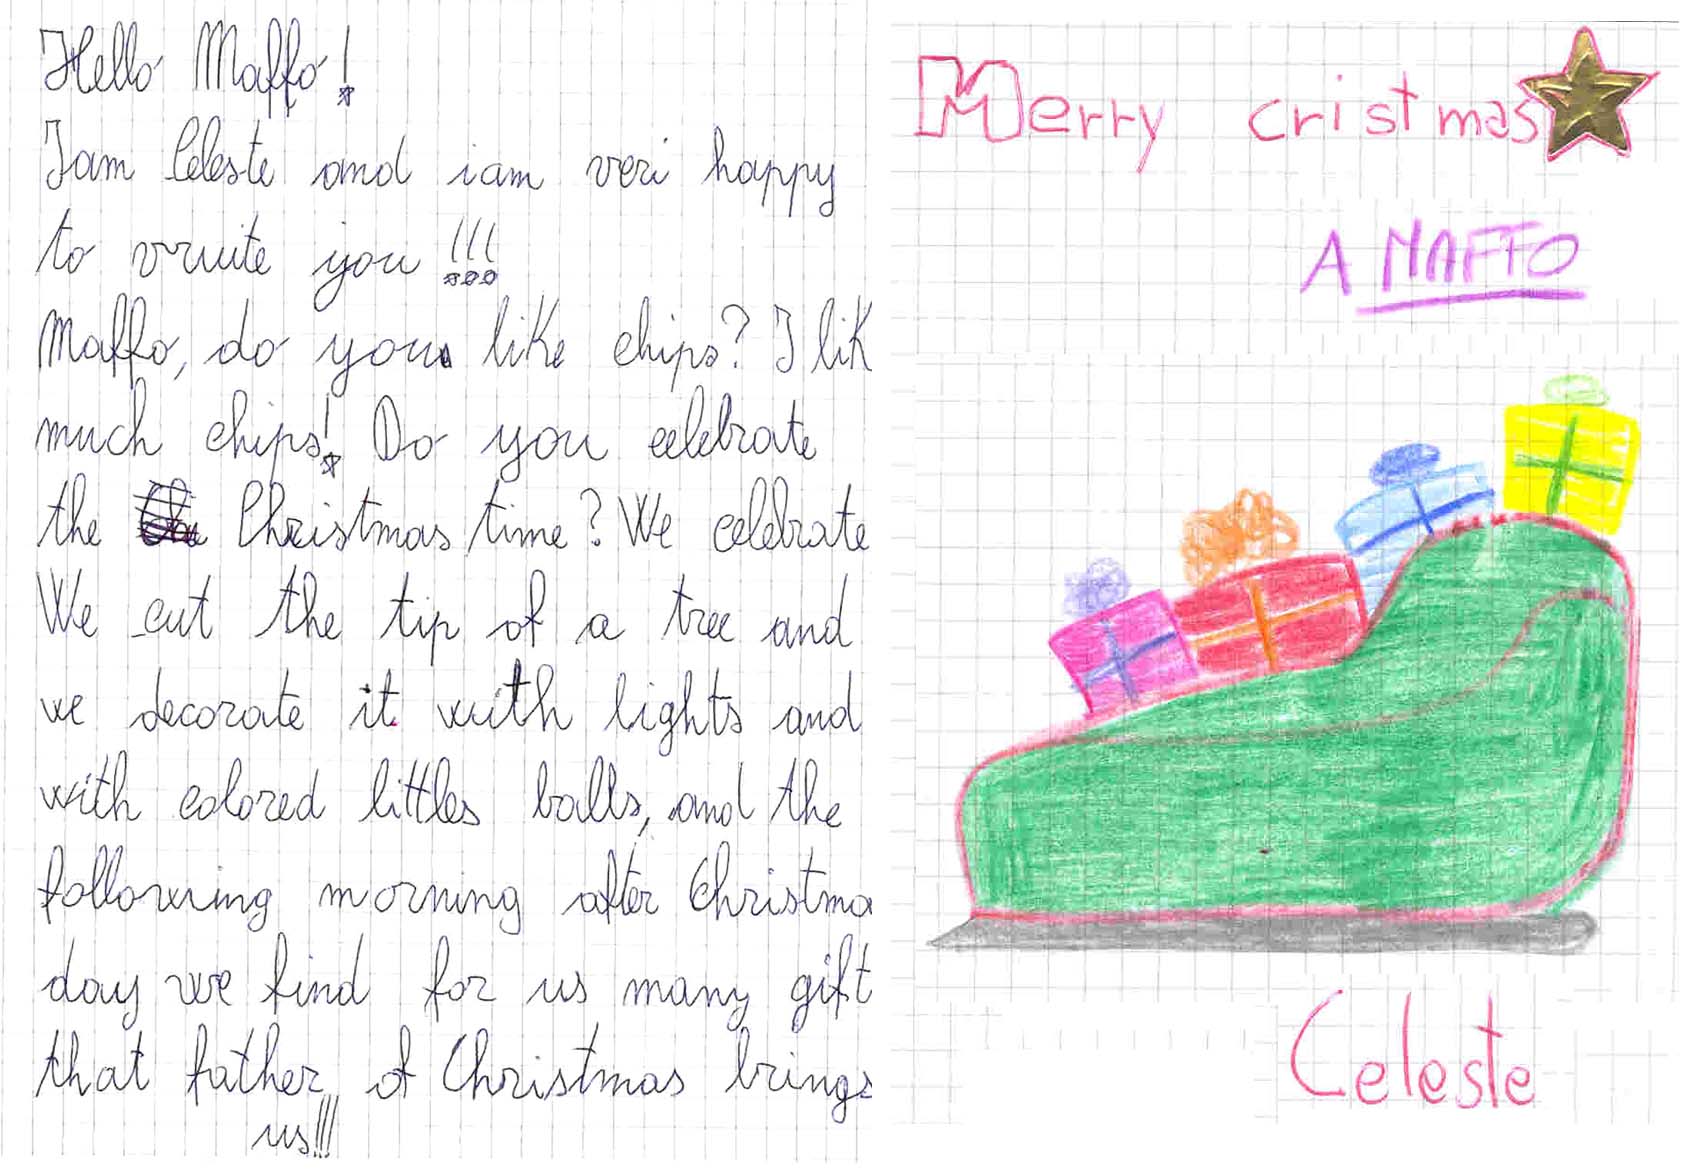 Hello Maffo!
Iam Celeste and iam veri happy
to vruite you !!!
Maffo, do you like chips? I lik
much chips! Do you celebrate
the Christmas time? We celebrate
We cut the tip of a tree and
we decorate it with lights and
with colored littles balls, and the
following morning after Christma
day we find for us many gift
that father of Christmas brings
us!!!
Merry cristmas
A MAFFO
Celeste